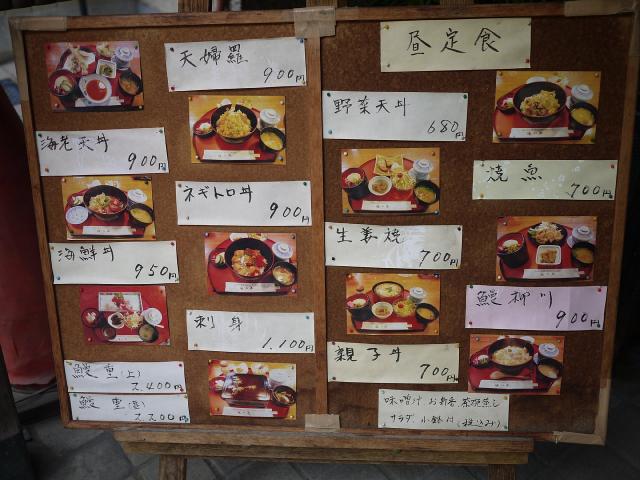 昼定食
天婦羅
900円
海老天丼
900円
ネギトロ丼
900円
海鮮丼
950円
刺身
1,100円
鰻重(上)
2,400円
鰻重(並)
2,200円
野菜天丼
680円
焼魚
700円
生姜焼
700円
鰻柳川
900円
親子丼
700円
味噌汁 お新香 茶碗蒸し
サラダ 小鉢付(税込み)